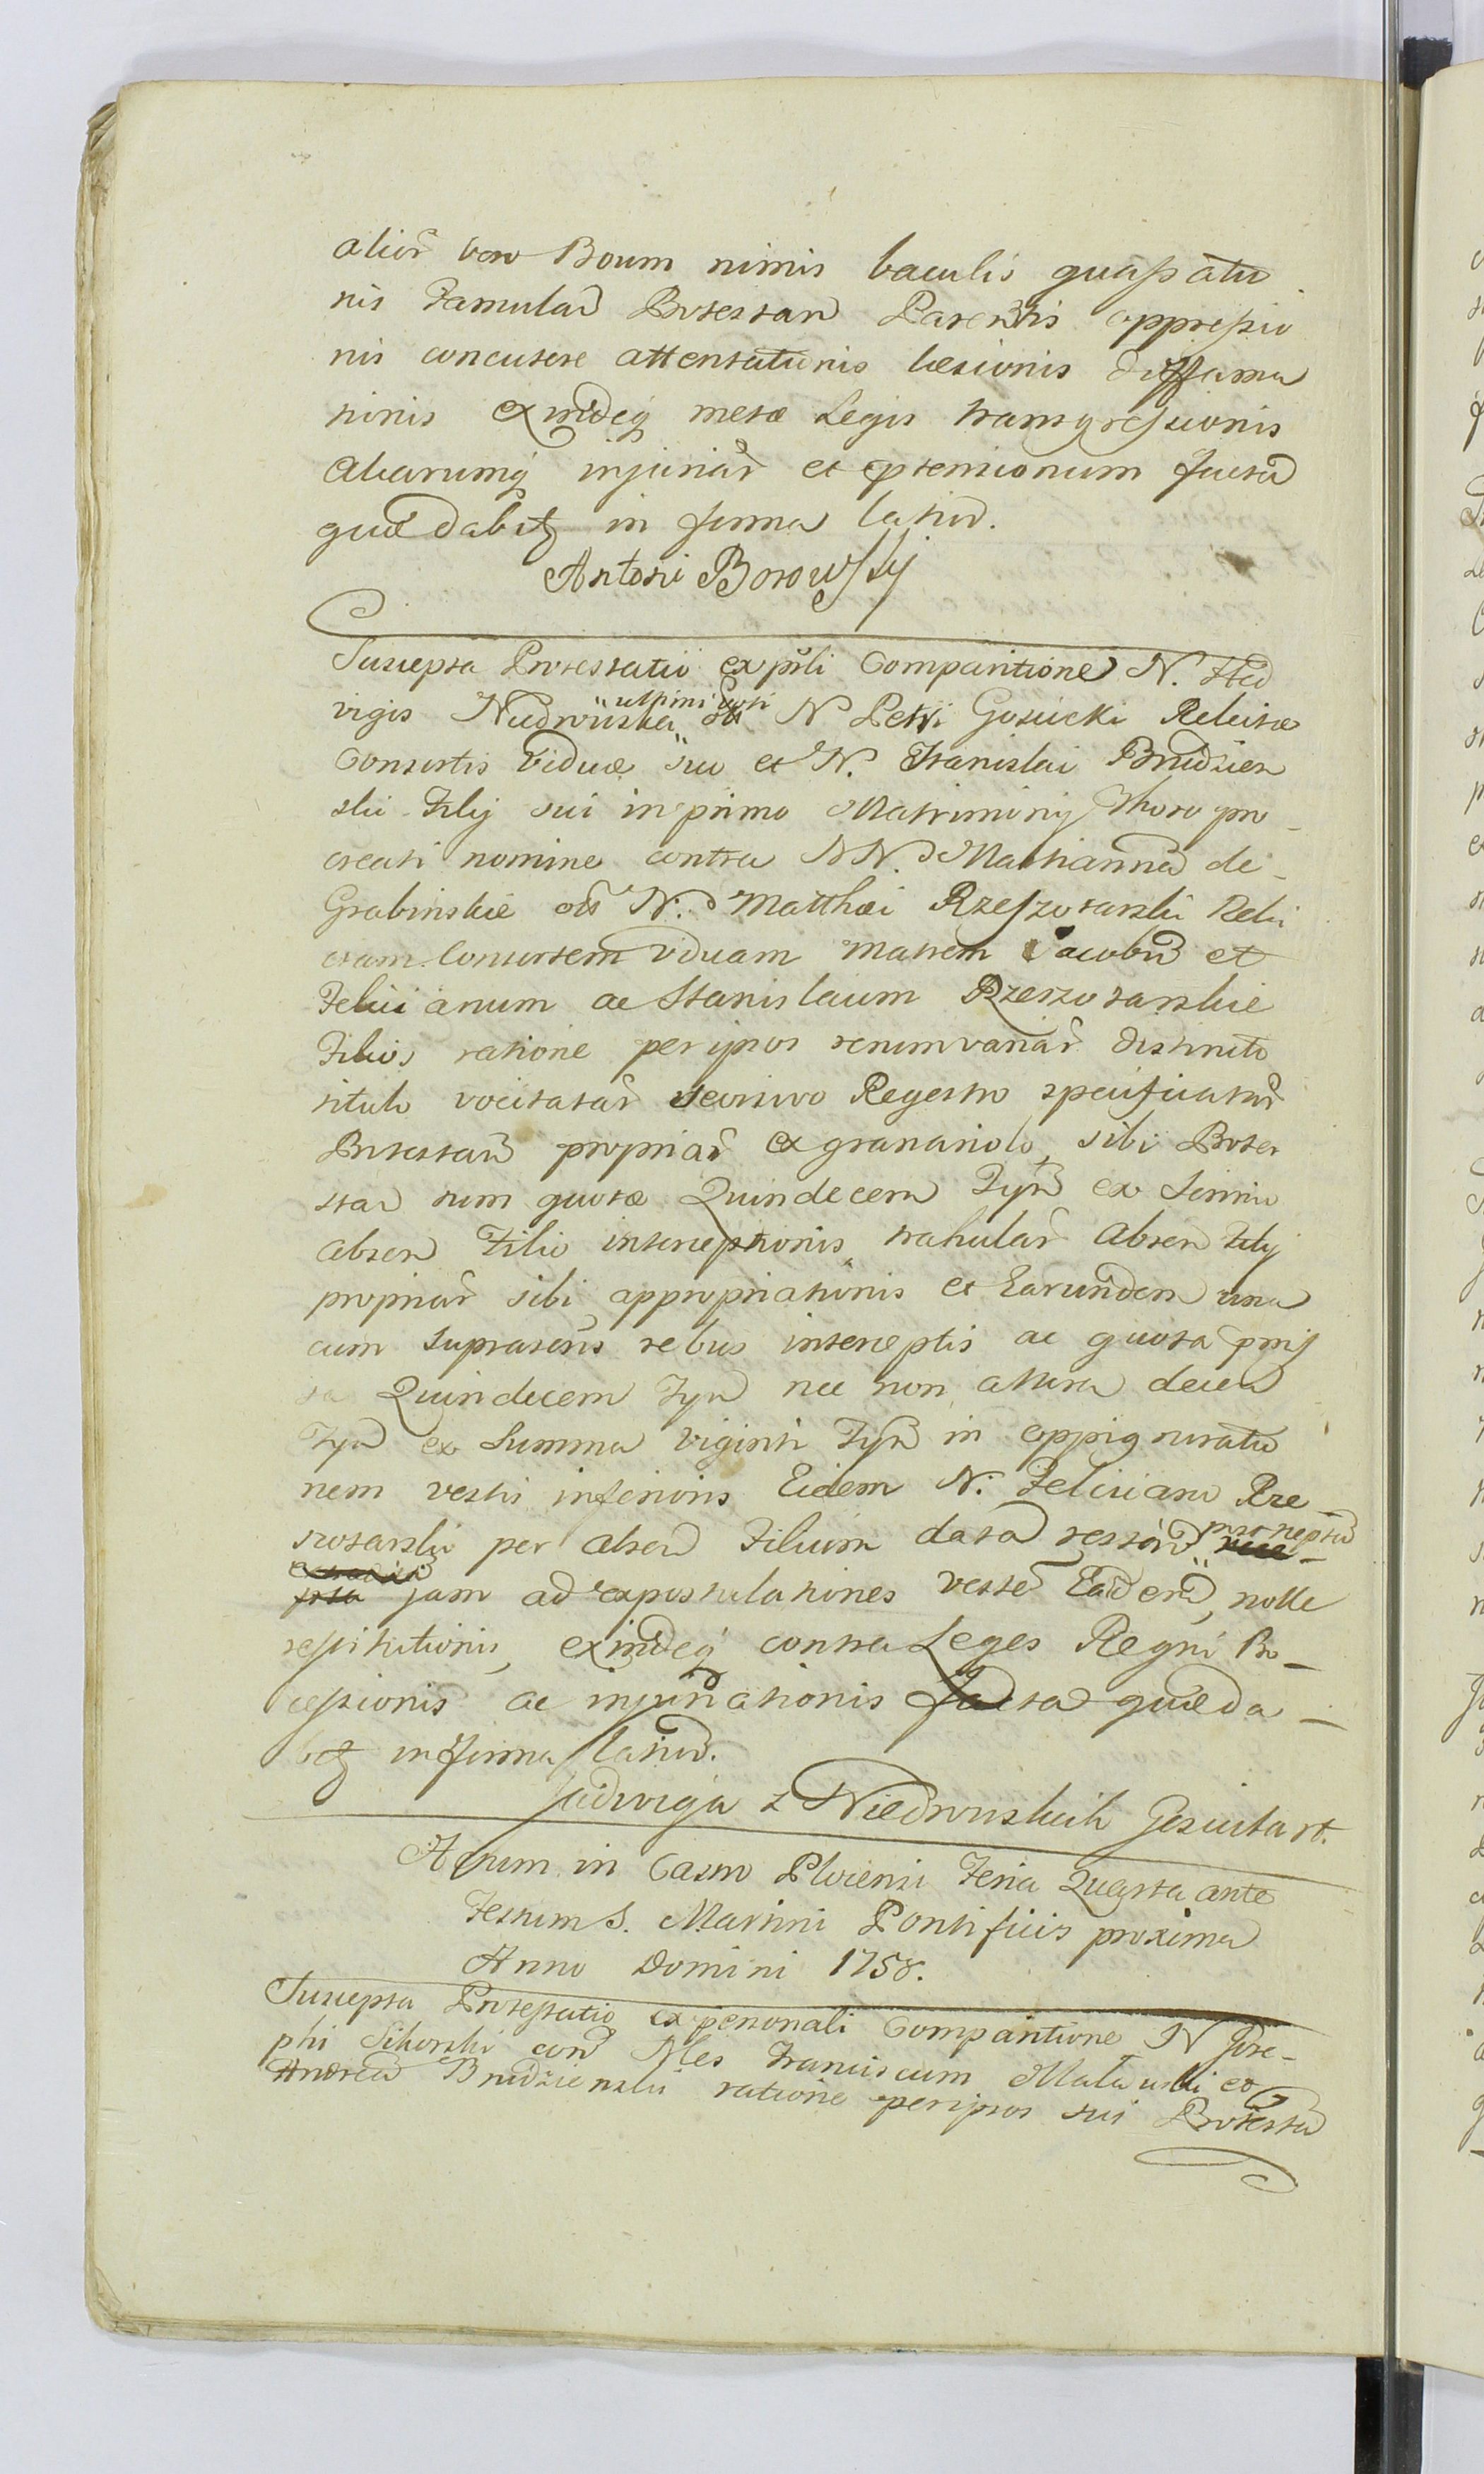 alior̃ vero Boum nimis baculis quassatio
nis Famulaꝝ Protestan Parentis oppressio
nis concutere attentationis læsionis diffama
tionis exindeq̃ metæ Legis transgressionis
Aliarumq̃ injuriar̃ et prætensionum facta
quæ dabitꝝ in forma latiori.
Antoni Borowsky
Suscepta Protestatio ex psñli Comparitione N. Hed
vigis Niedrwiuska ultimi Voti N Petri Gosiicki Relictæ
Consortis Viduæ suo et N. Stanislai Brudzien
ski Filij sui in primo Matrimonij Thoro pro
creati nomine contra NN. Mariannam de
Grabinskie olĩ N. Matthæi Rzeszotarski Reli
ctam Consortem Viduam matrem Jacobum et
Felicianum ac Stanislaum Rzeszotarskie
Filios ratione per ipsos rerum variar̃ distincto
titulo vocitatar̃ seorsivo Regestro specificatar̃
Protestan propriar̃ ex granariolo, sibi Protes
tan tum quotæ Quindecem Tyn̄ ex Scrinio
Absen Filio interceptionis trahular̃ Absen Filij
propriar̃ sibi appropriationis et Earundem una
cum suprascris rebus interceptis ac quota præmis
sa Quindecem Tyn nec non altera decem
Tyn ex Summa Viginti Tyn in oppignoratio
nem vestis inferioris Eidem N. Feliciano Rze
szotarski per Absen Filium data
jam ad expostulationes veste Eadem, nolle
restitutionis, exindeq̃ contra Leges Regni Pro
cessionis ac injuriationis facta quæ da
bitꝝ in forma latiori.
Jadwiga z Niedrwuskich Gosicka rt.
Actum in Castro Plocensi Feria Quarta ante
Festum S. Martini Pontificis proxima
Anno Domini 1758.
Suscepta Protestatio ex personali Comparitione N Jose
phi Sikorski con Nles Franciscum Malawski et
Andream Brudzienski ratione per ipsos sui Protestan